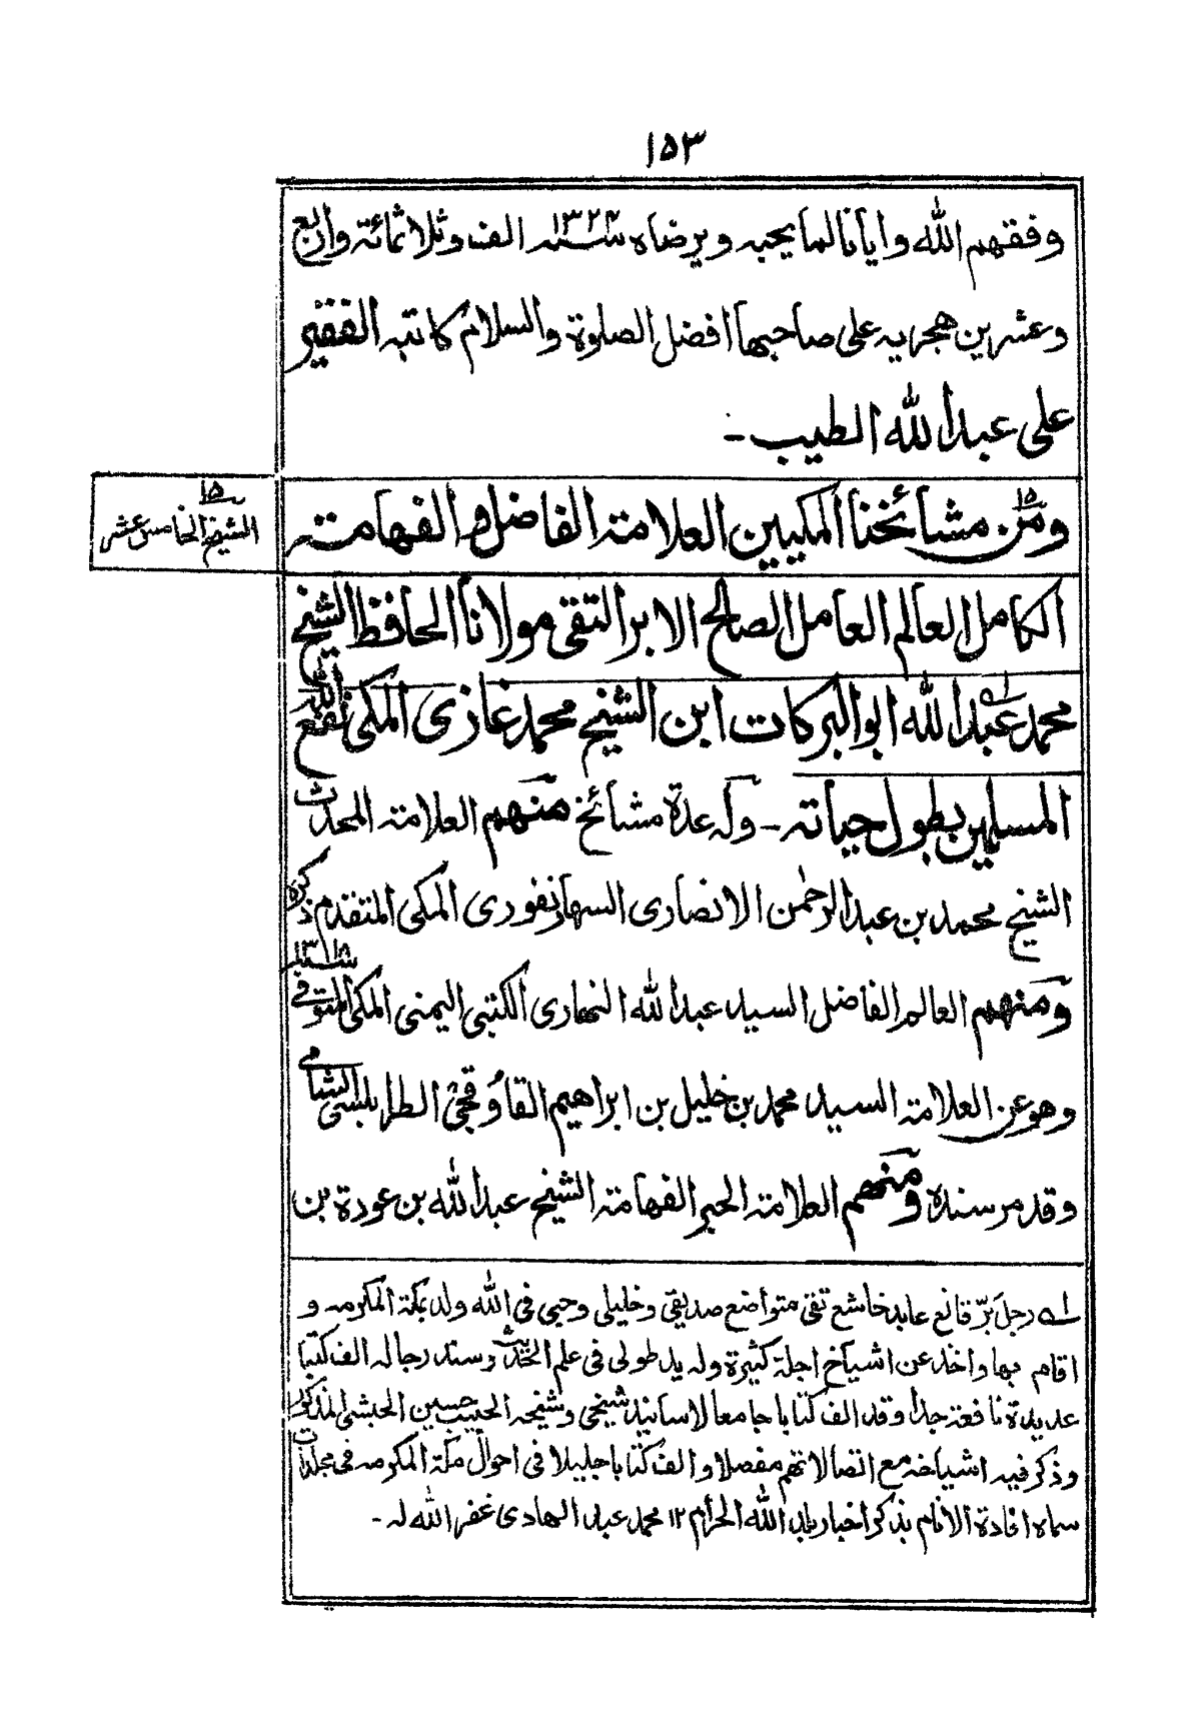 ١٥٣
وفقهم الله وايانا لما يحبه ويرضاه سنه ١٣٢٤ الف وثلاثمائة واربع
وعشرين هجريه على صاحبها افضل الصلوة والسلام كاتبه الفقير
على عبدالله الطيب۔
١٥ الشيخ الخامس عشر
١٥ ومن مشائخنا المكيين العلامة الفاضل و الفهامة
الكامل العالم العامل الصالح الابر التقى مولانا الحافظ الشيخ
محمد عبدالله ابوالبركات ابن الشيخ محمد غازى المكى نفع الله
المسلمين بطول حياته۔ وله عدة مشائخ منهم العلامة المحدث
الشيخ محمد بن عبدالرحمن الانصارى السهارنفورى المكى المتقدم ذكره
ومنهم العالم الفاضل السيد عبدالله النهارى الكتبى اليمنى المكى المتوفى سنه ١٣١٨
وهو عن العلامة السيد محمد بن خليل بن ابراهيم القاوقجى الطرابلسى الشامى
وقد مر سنده ومنهم العلامة الحبر الفهامة الشيخ عبدالله بن عودة بن
له رجل بَرّ قانع عابد خاشع تقى متواضع صديقى وخليلى وحبى فى الله ولد بمكة المكرمه و
اقام بها واخذ عن اشياخ اجلة كثيرة وله يد طولى فى علم الحديث وسند رجاله الف كتبا
عديدة نافعة جدا وقد الف كتابا جامعا لاسانيد شيخى وشيخه الحبيب حسين الحبشى المذكور
وذكر فيه اشياخه مع اتصالاتهم مفصلا والف كتابا جليلا فى احوال مكة المكرمه فى مجلدات
سماه افادة الانام بذكر اخبار بلد الله الحرام ١٢ محمد عبد الهادى غفر الله له۔